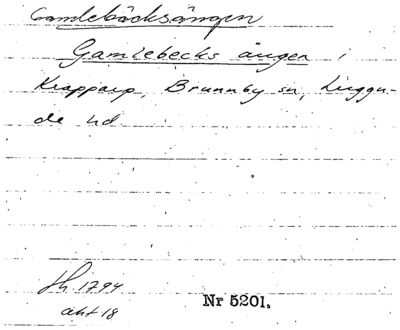 Gamlebäcksängen
Gamlebecks ängen i
Krapparp, Brunnby sn, Luggu-
de hd.
Jh. 1794
akt 18
Nr 5201.